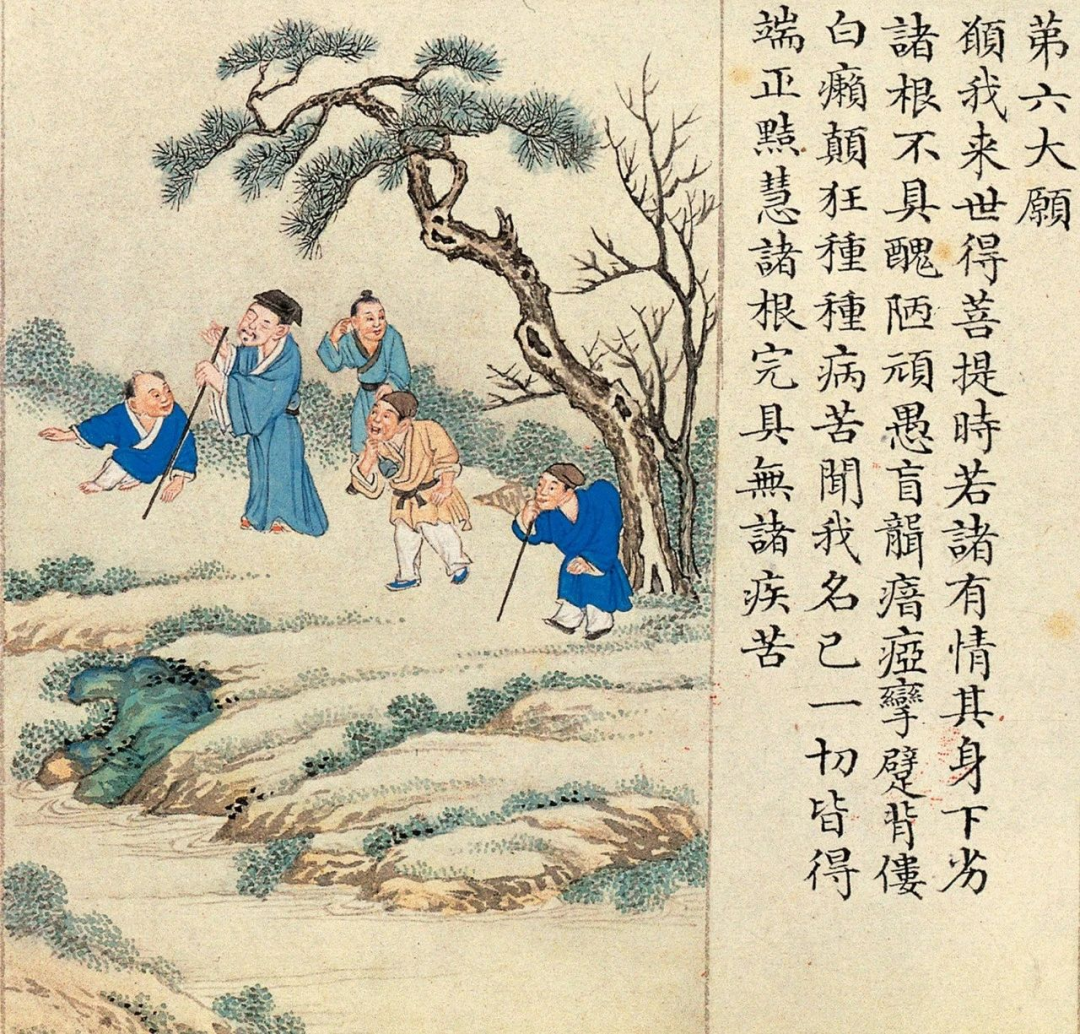 第六大願
願我来世得菩提時若諸有情其身下劣
諸根不具醜陋頑愚盲聾瘖瘂攣躄背僂
白癩顛狂種種病苦聞我名已一切皆得
端正黠慧諸根完具無諸疾苦